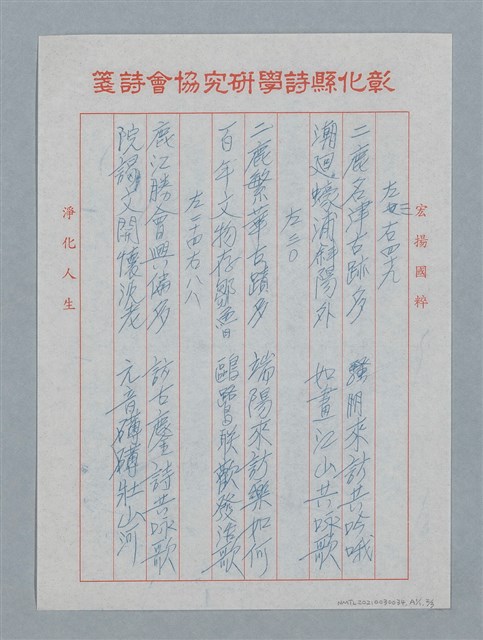 彰化縣詩學研究協會詩箋
宏揚國粹
右四九
二鹿名津古跡多 騷朋來訪共吟哦
潮迴蠔浦斜陽外 如畫江山共咏歌
左三〇
二鹿繁華古蹟多 端陽來訪樂如何
百年文物存鄒魯 鷗鷺聯歡發浩歌
左二十四右八八
鹿江勝會興偏多 訪古詩共咏歌
院謁文開懷沈老 元音磅礡壯山河
淨化人生